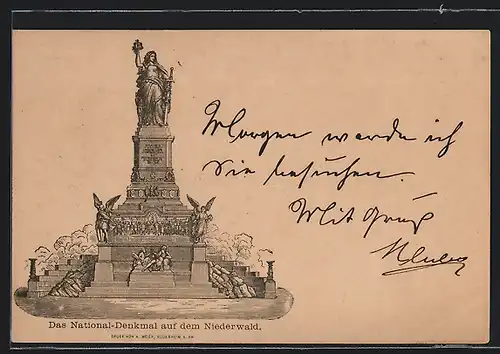 Morgen werde ich
Sie besuchen.
Mit Gruß
Das National-Denkmal auf dem Niederwald.